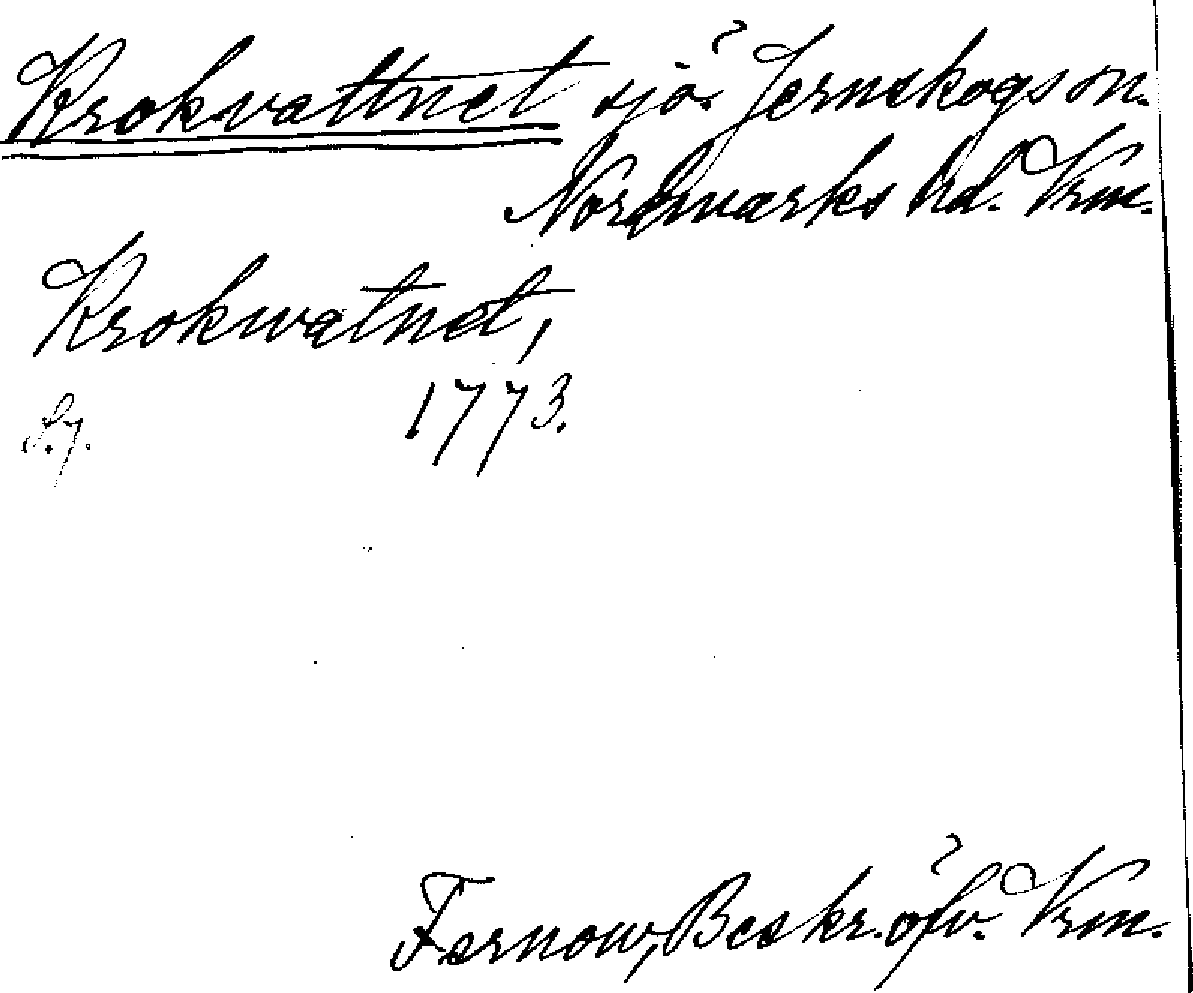 Krokvattnet sjö Jernskogs sn.
Nordmarks hd. Vrm.
Krokwatnet,
1773.
S. 7.
Fernow, Beskr. öfv. Vrm.